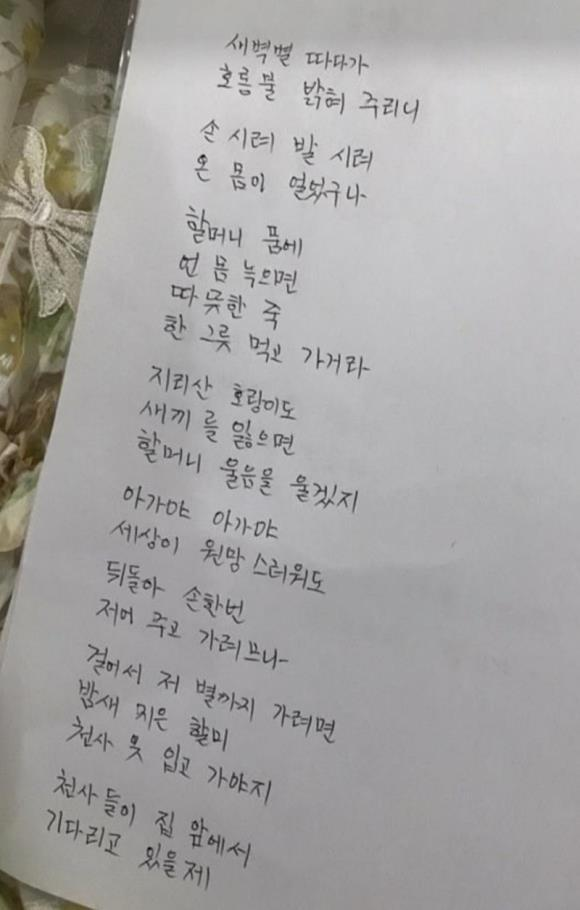 새벽별 따다가
호롱불 밝혀 주리니
손 시려 발 시려
온 몸이 얼었구나
할머니 품에
언 몸 녹으면
따뜻한 죽
한 그릇 먹고 가거라
지리산 호랑이도
새끼를 잃으면
할머니 울음을 울겠지
아가야 아가야
세상이 원망스러워도
뒤돌아 손 한번
저어 주고 가려므나
걸어서 저 별까지 가려면
밤새 지은 할미
천사 옷 입고 가야지
천사들이 집 앞에서
기다리고 있을제